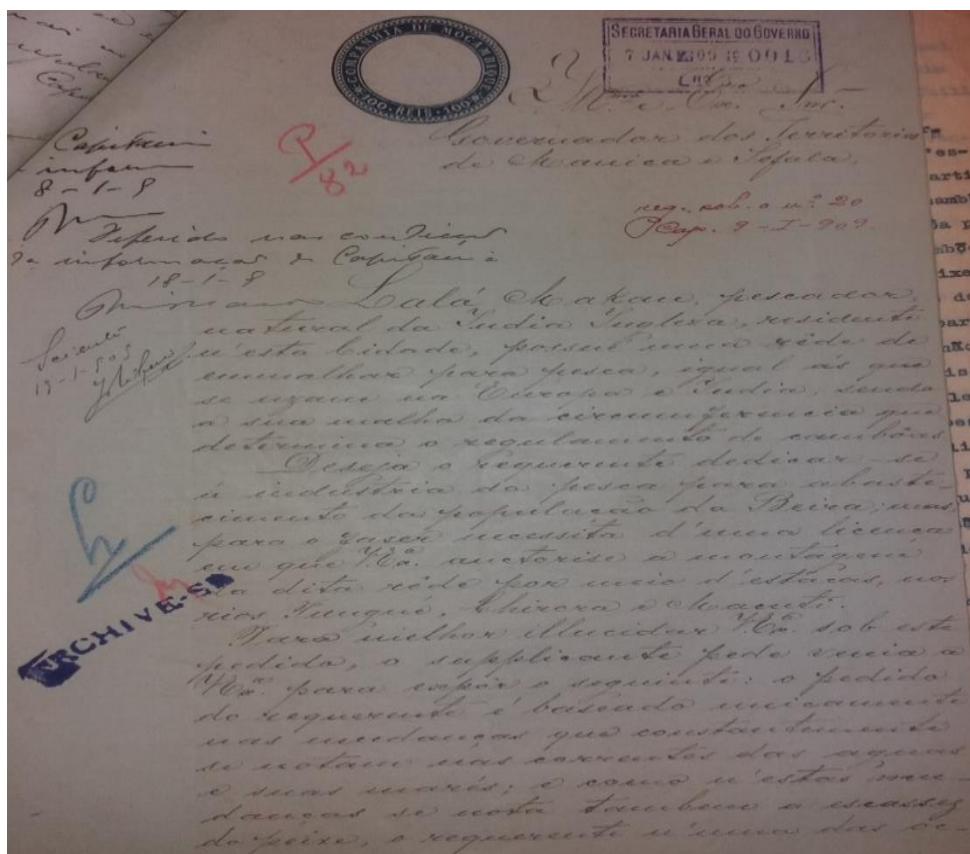 COMPANHIA DE MOÇAMBIQUE
100-REIS-100
SECRETARIA GERAL DO GOVERNO
7 JAN 1909 0016
Illmo. e Exmo. Snr.
Governador dos Territorios
de Manica e Sofala.
P/82
Capitania
informe
8-1-9
reg. sob. o nº 20
Cap. 9-I-909.
Deferido nas condições
da informação da Capitania
18-1-9
Sciente
19-1-909
Lalá Makan, pescador,
natural da India Ingleza, residente
n'esta Cidade, possue uma rêde de
emmalhar para pesca, igual ás que
se uzam na Europa e India, sendo
a sua malha da circumferencia que
determina o regulamento de cambôas
Deseja o requerente dedicar-se
á industria da pesca para abaste-
cimento da população da Beira; mas
para o fazer necessita d'uma licença
em que V.Exa. auctorise a montagem
da dita rêde por meio d'estácas, nos
rios Pungué, Chiveve e Macuti.
ARCHIVE-SE
Para melhor illucidar V.Exa. sob este
pedido, o supplicante pede venia a
V.Exa. para expôr o seguinte: o pedido
do requerente é baseado unicamente
nas mudanças que constantemente
se notam nas correntes das aguas
e suas marés; e como n'estas mu-
danças se nota tambem a escassez
do peixe, o requerente n'uma das oc-